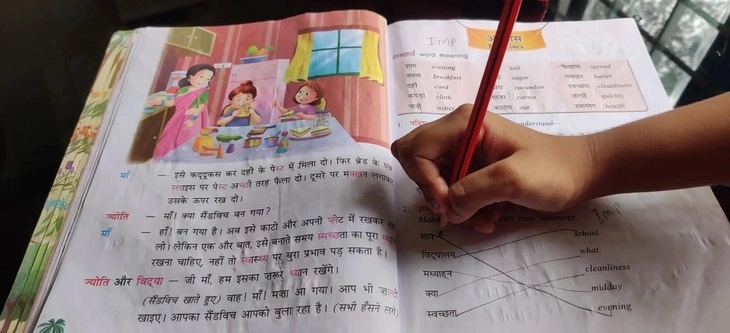 माँ — इसे कद्दूकस कर दही के पेस्ट में मिला दो। फिर ब्रेड के एक
स्लाइस पर पेस्ट अच्छी तरह फैला दो। दूसरे पर मक्खन लगाकर
उसके ऊपर रख दो।
ज्योति — माँ! क्या सैंडविच बन गया?
माँ — हाँ! बन गया है। अब इसे काटो और अपनी प्लेट में रखकर
लो। लेकिन एक और बात, इसे बनाते समय स्वच्छता का पूरा
रखना चाहिए, नहीं तो स्वास्थ्य पर बुरा प्रभाव पड़ सकता है।
ज्योति और विद्या — जी माँ, हम इसका ज़रूर ध्यान रखेंगे।
(सैंडविच खाते हुए) वाह! माँ! मज़ा आ गया। आप भी
खाइए। आपका सैंडविच आपको बुला रहा है। (सभी हँसने लगे)
IMP
word meaning
शाम evening salt फैलाना spread
नाश्ता breakfast sugar मक्खन butter
दही curd cucumber स्वच्छता cleanliness
कपड़ा cloth गाजर carrot जल्दी quickly
पानी water काटना cut स्वास्थ्य health
1.
understand—
2.
Match with their meanings.
Imp
शाम school
विद्यालय what
मध्याहन cleanliness
क्या midday
स्वच्छता evening